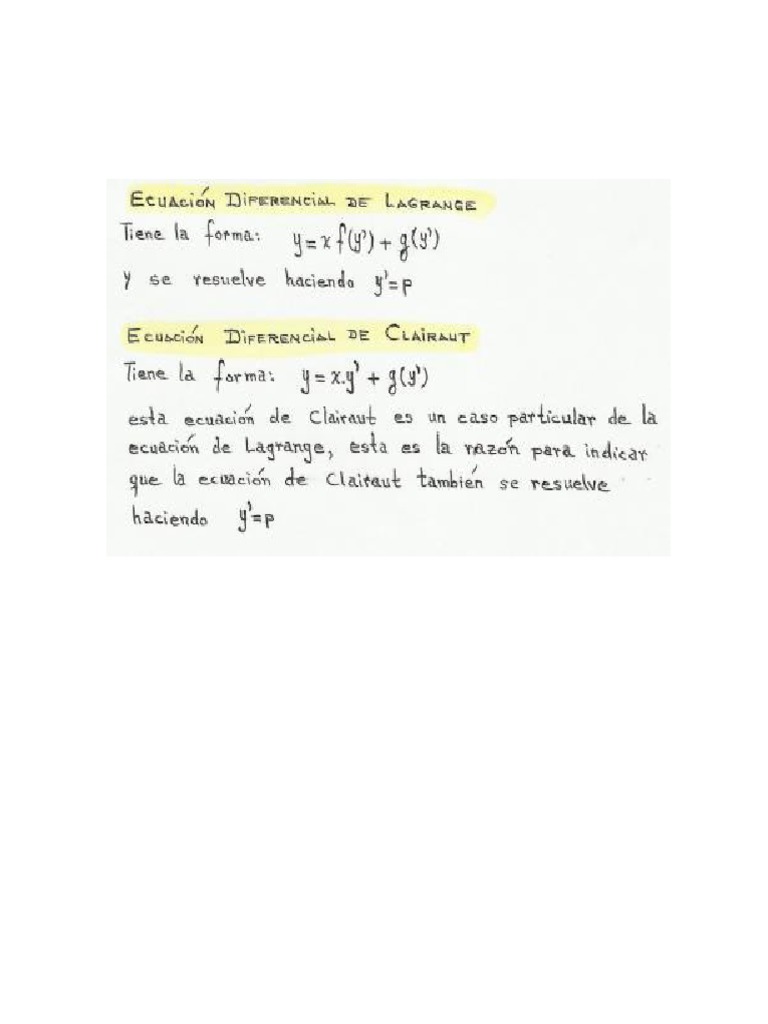 ECUACIÓN DIFERENCIAL DE LAGRANGE
Tiene la forma: y = x f(y') + g(y')
y se resuelve haciendo y'=p
ECUACIÓN DIFERENCIAL DE CLAIRAUT
Tiene la forma: y = x.y' + g(y')
esta ecuación de Clairaut es un caso particular de la
ecuación de Lagrange, esta es la razón para indicar
que la ecuación de Clairaut también se resuelve
haciendo y'=p